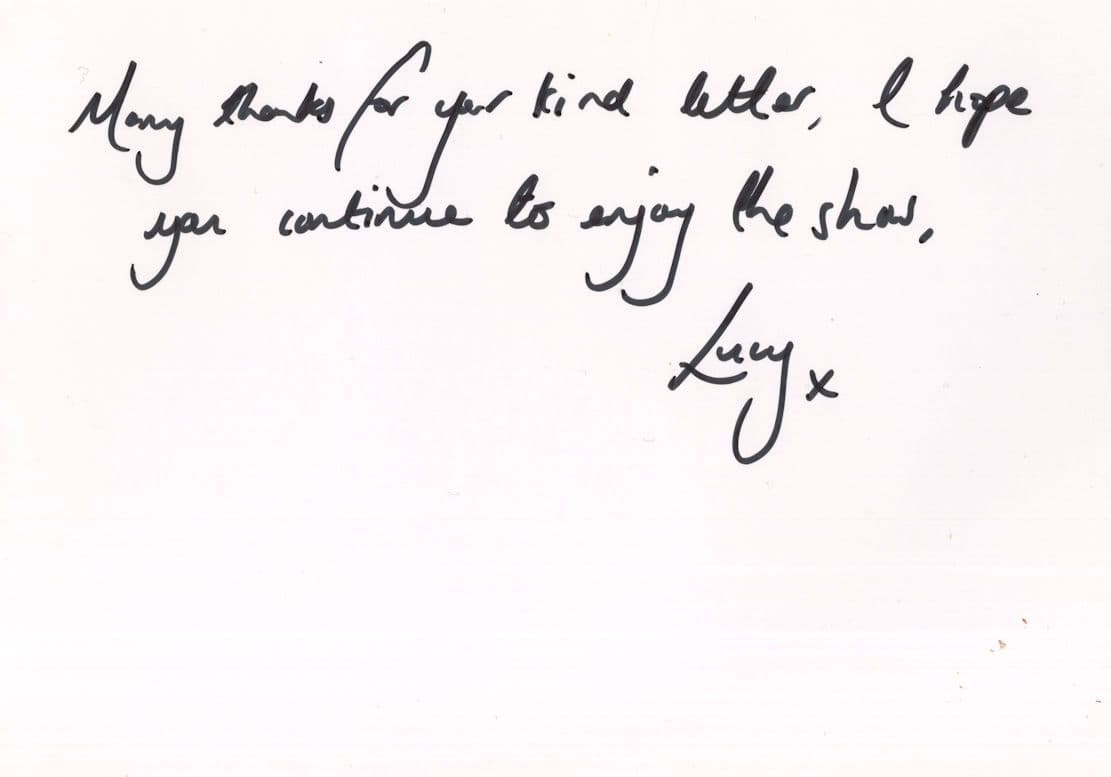 Many thanks for your kind letter, I hope
you continue to enjoy the show,
Lucy x